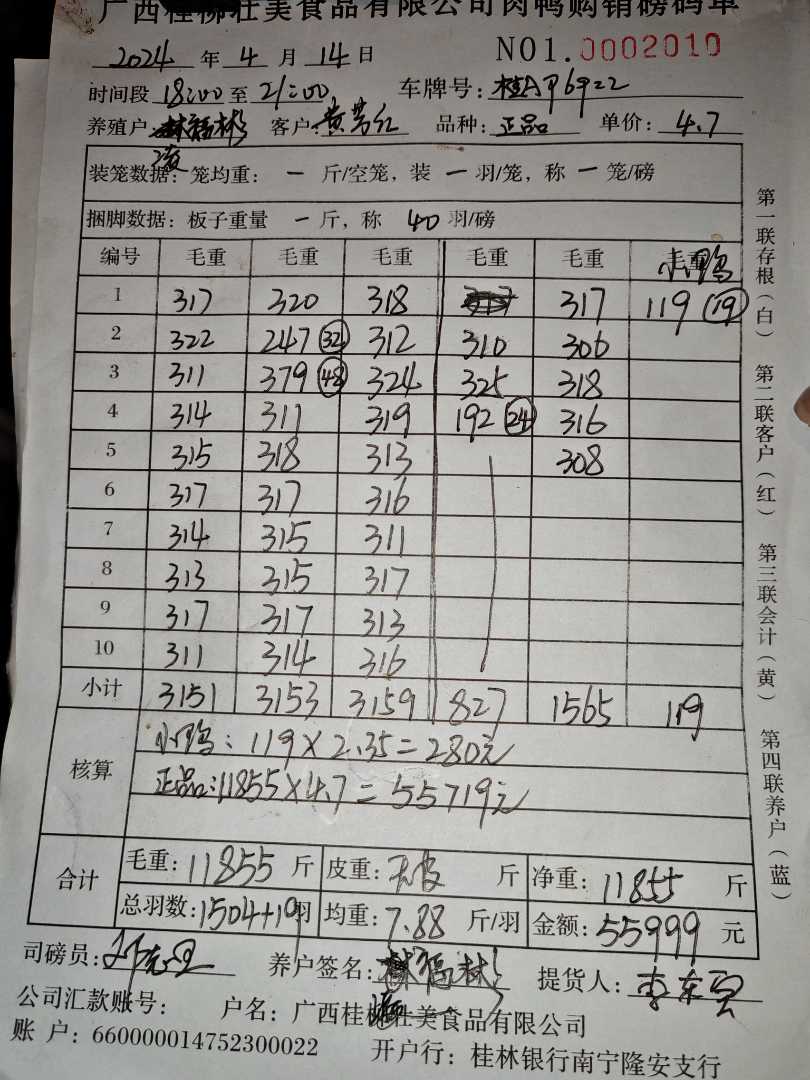 广西桂柳壮美食品有限公司肉鸭购销磅码单
2024 年 4 月 14 日 NO1.0002010
时间段 18:00 至 21:00 车牌号:
养殖户: 客户: 黄芳红 品种: 正品 单价: 4.7
装笼数据: 笼均重: 一 斤/空笼, 装 一 羽/笼, 称 一 笼/磅
捆脚数据: 板子重量 一 斤, 称 40 羽/磅
编号 毛重 毛重 毛重 毛重 毛重 毛重 小鸭
1 317 320 318 317 119 (19)
2 322 247 (32) 312 310 306
3 311 379 (48) 324 325 318
4 314 311 319 192 (24) 316
5 315 318 313 308
6 317 317 316
7 314 315 311
8 313 315 317
9 317 317 313
10 311 314 316
小计 3151 3153 3159 827 1565 119
核算 小鸭: 119×2.35=280元
正品: 11855×4.7=55719元
合计 毛重: 11855 斤 皮重: 无皮 斤 净重: 11855 斤
总羽数: 1504+19 羽 均重: 7.88 斤/羽 金额: 55999 元
司磅员: 养户签名: 提货人:
公司汇款账号: 户名: 广西桂柳壮美食品有限公司
账 户: 660000014752300022 开户行: 桂林银行南宁隆安支行
第一联存根(白) 第二联客户(红) 第三联会计(黄) 第四联养户(蓝)